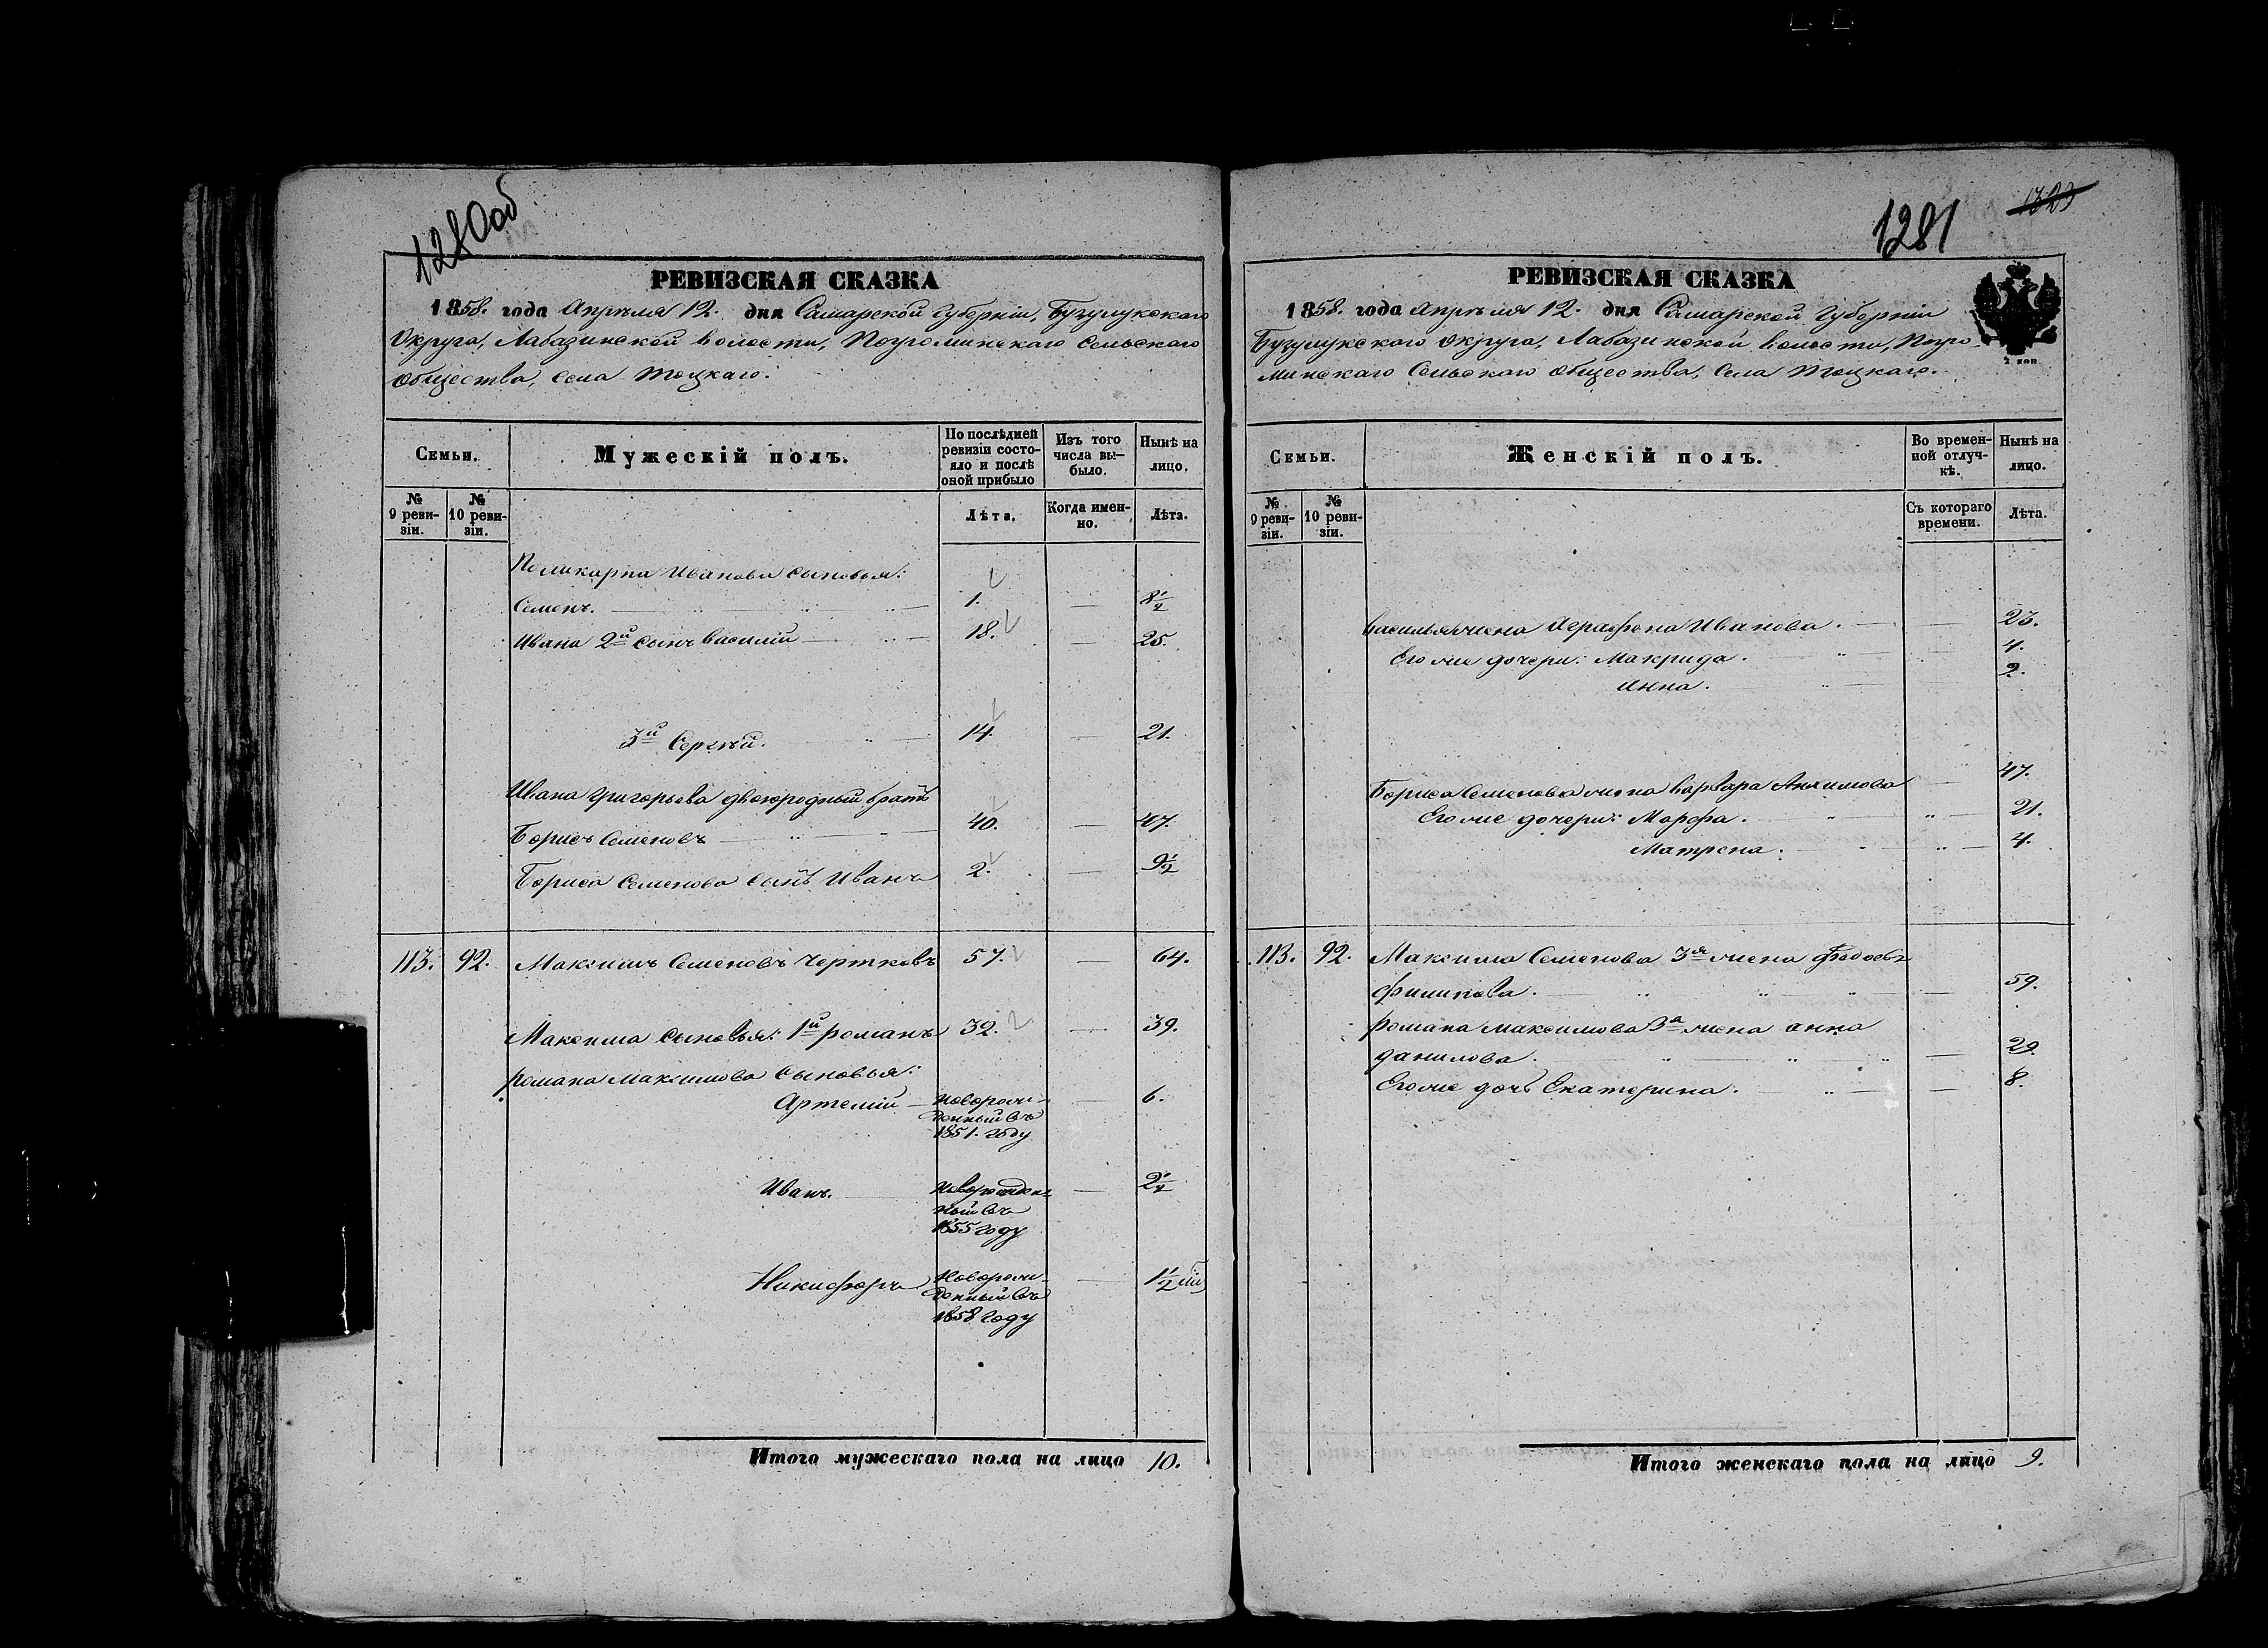 1280об
РЕВИЗСКАЯ СКАЗКА
1858. года Апрѣля 12. дня Самарской Губерніи, Бузулукскаго
Округа, Лабазинской волости, Погроминскаго Сельскаго
Общества, Села Тоцкаго.
Семьи.
Мужескій полъ.
По послѣдней ревизіи состояло и послѣ оной прибыло
Изъ того числа выбыло.
Нынѣ на лицо.
№ 9 ревизіи.
№ 10 ревизіи.
Лѣта.
Когда именно.
Лѣта.
Поликарпа Иванова сыновья:
Семенъ. 1. — 8½
Ивана 2й сынъ Василій 18. — 25.
3й Сергѣй. 14. — 21.
Ивана Григорьева двоюродный братъ
Борисъ Семеновъ 40. — 47.
Бориса Семенова сынъ Иванъ 2. — 9½
113. 92. Максимъ Семеновъ Чертковъ 57. — 64.
Максима сыновья: 1й Романъ 32. — 39.
Романа Максимова сыновья:
Артемій — новорож- — 6.
денный въ
1851. году
Иванъ. новорожден- — 2½
ный въ
1855 году
Никифоръ новорож- — 1½
денный въ
1858 году
Итого мужескаго пола на лицо 10.
1281
1323
РЕВИЗСКАЯ СКАЗКА
1858. года Апрѣля 12. дня Самарской Губерніи
Бузулукскаго Округа, Лабазинской волости, Погро-
минскаго Сельскаго Общества, Села Тоцкаго.
2 коп
Семьи.
Женскій полъ.
Во временной отлучкѣ.
Нынѣ на лицо.
№ 9 ревизіи.
№ 10 ревизіи.
Съ котораго времени.
Лѣта.
Василья жена Аграфена Иванова. — 23.
Его же дочери: Макрида. — 4.
Анна. 2.
Бориса Семенова жена Варвара Акимова — 47.
Его же дочери: Марфа. — 21.
Матрена. — 4.
113. 92. Максима Семенова 3я жена Федосья
Филипова. — 59.
Романа Максимова 3я жена Анна
Данилова. — 29.
Его же дочь Екатерина. — 8.
Итого женскаго пола на лицо 9.